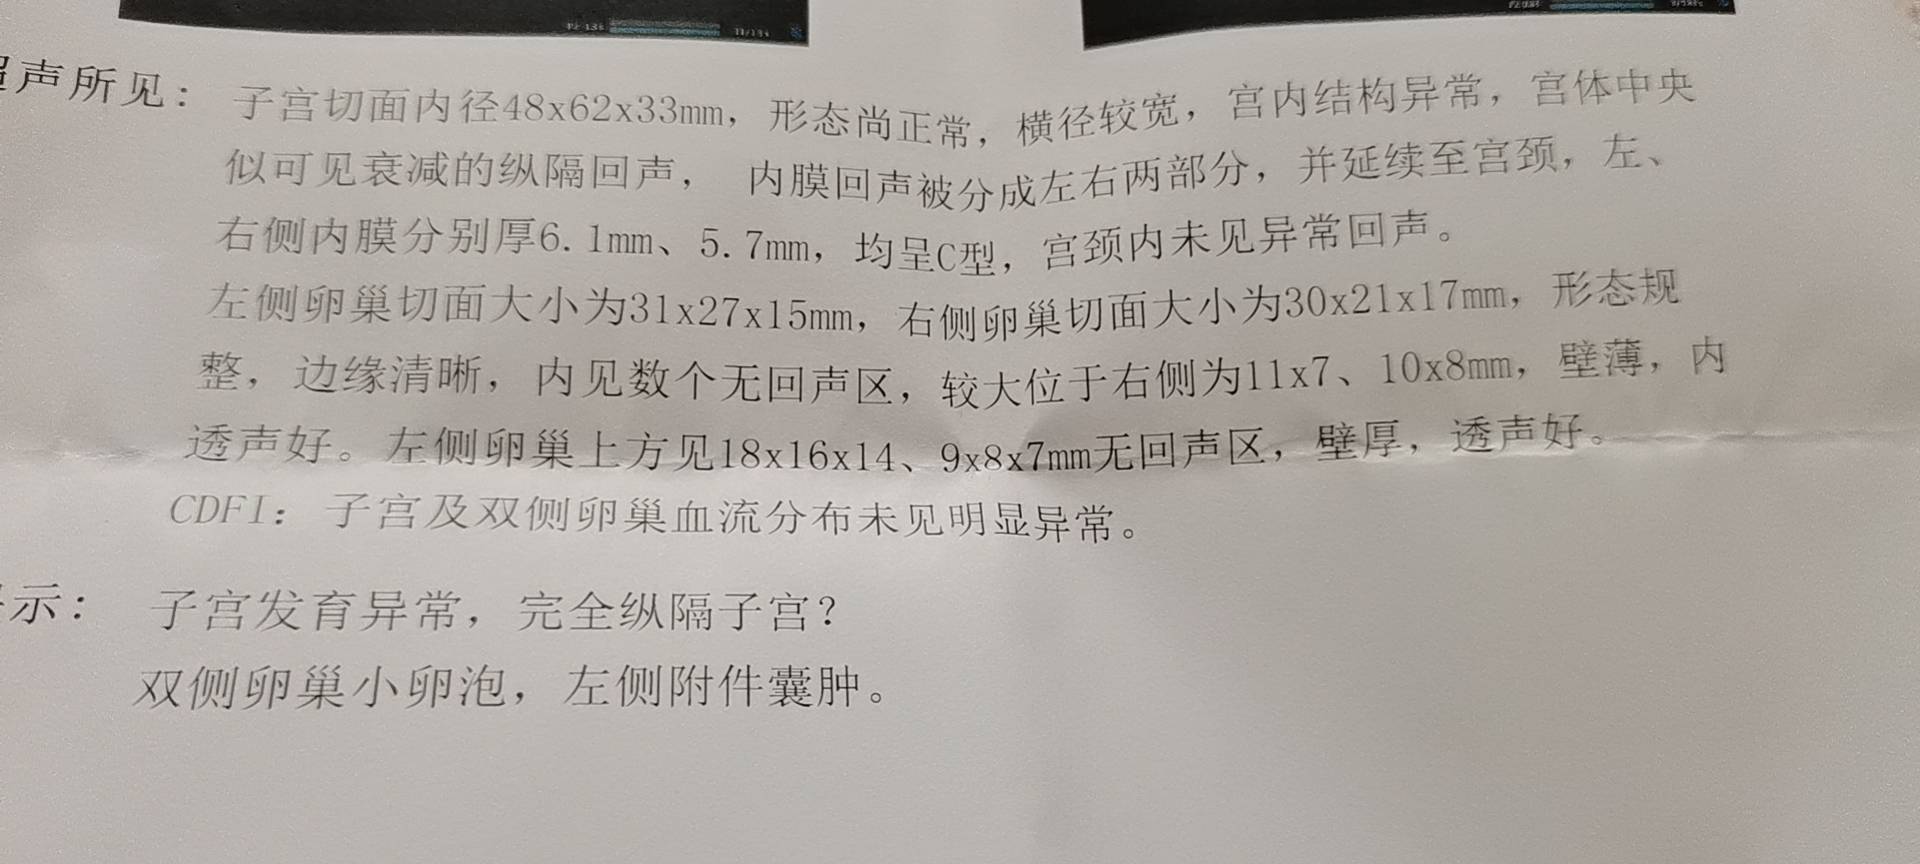 声所见： 子宫切面内径48x62x33mm，形态尚正常，横径较宽，宫内结构异常，宫体中央
似可见衰减的纵隔回声， 内膜回声被分成左右两部分，并延续至宫颈，左、
右侧内膜分别厚6.1mm、5.7mm，均呈C型，宫颈内未见异常回声。
左侧卵巢切面大小为31x27x15mm，右侧卵巢切面大小为30x21x17mm，形态规
整，边缘清晰，内见数个无回声区，较大位于右侧为11x7、10x8mm，壁薄，内
透声好。左侧卵巢上方见18x16x14、9x8x7mm无回声区，壁厚，透声好。
CDFI：子宫及双侧卵巢血流分布未见明显异常。
示： 子宫发育异常，完全纵隔子宫？
双侧卵巢小卵泡，左侧附件囊肿。